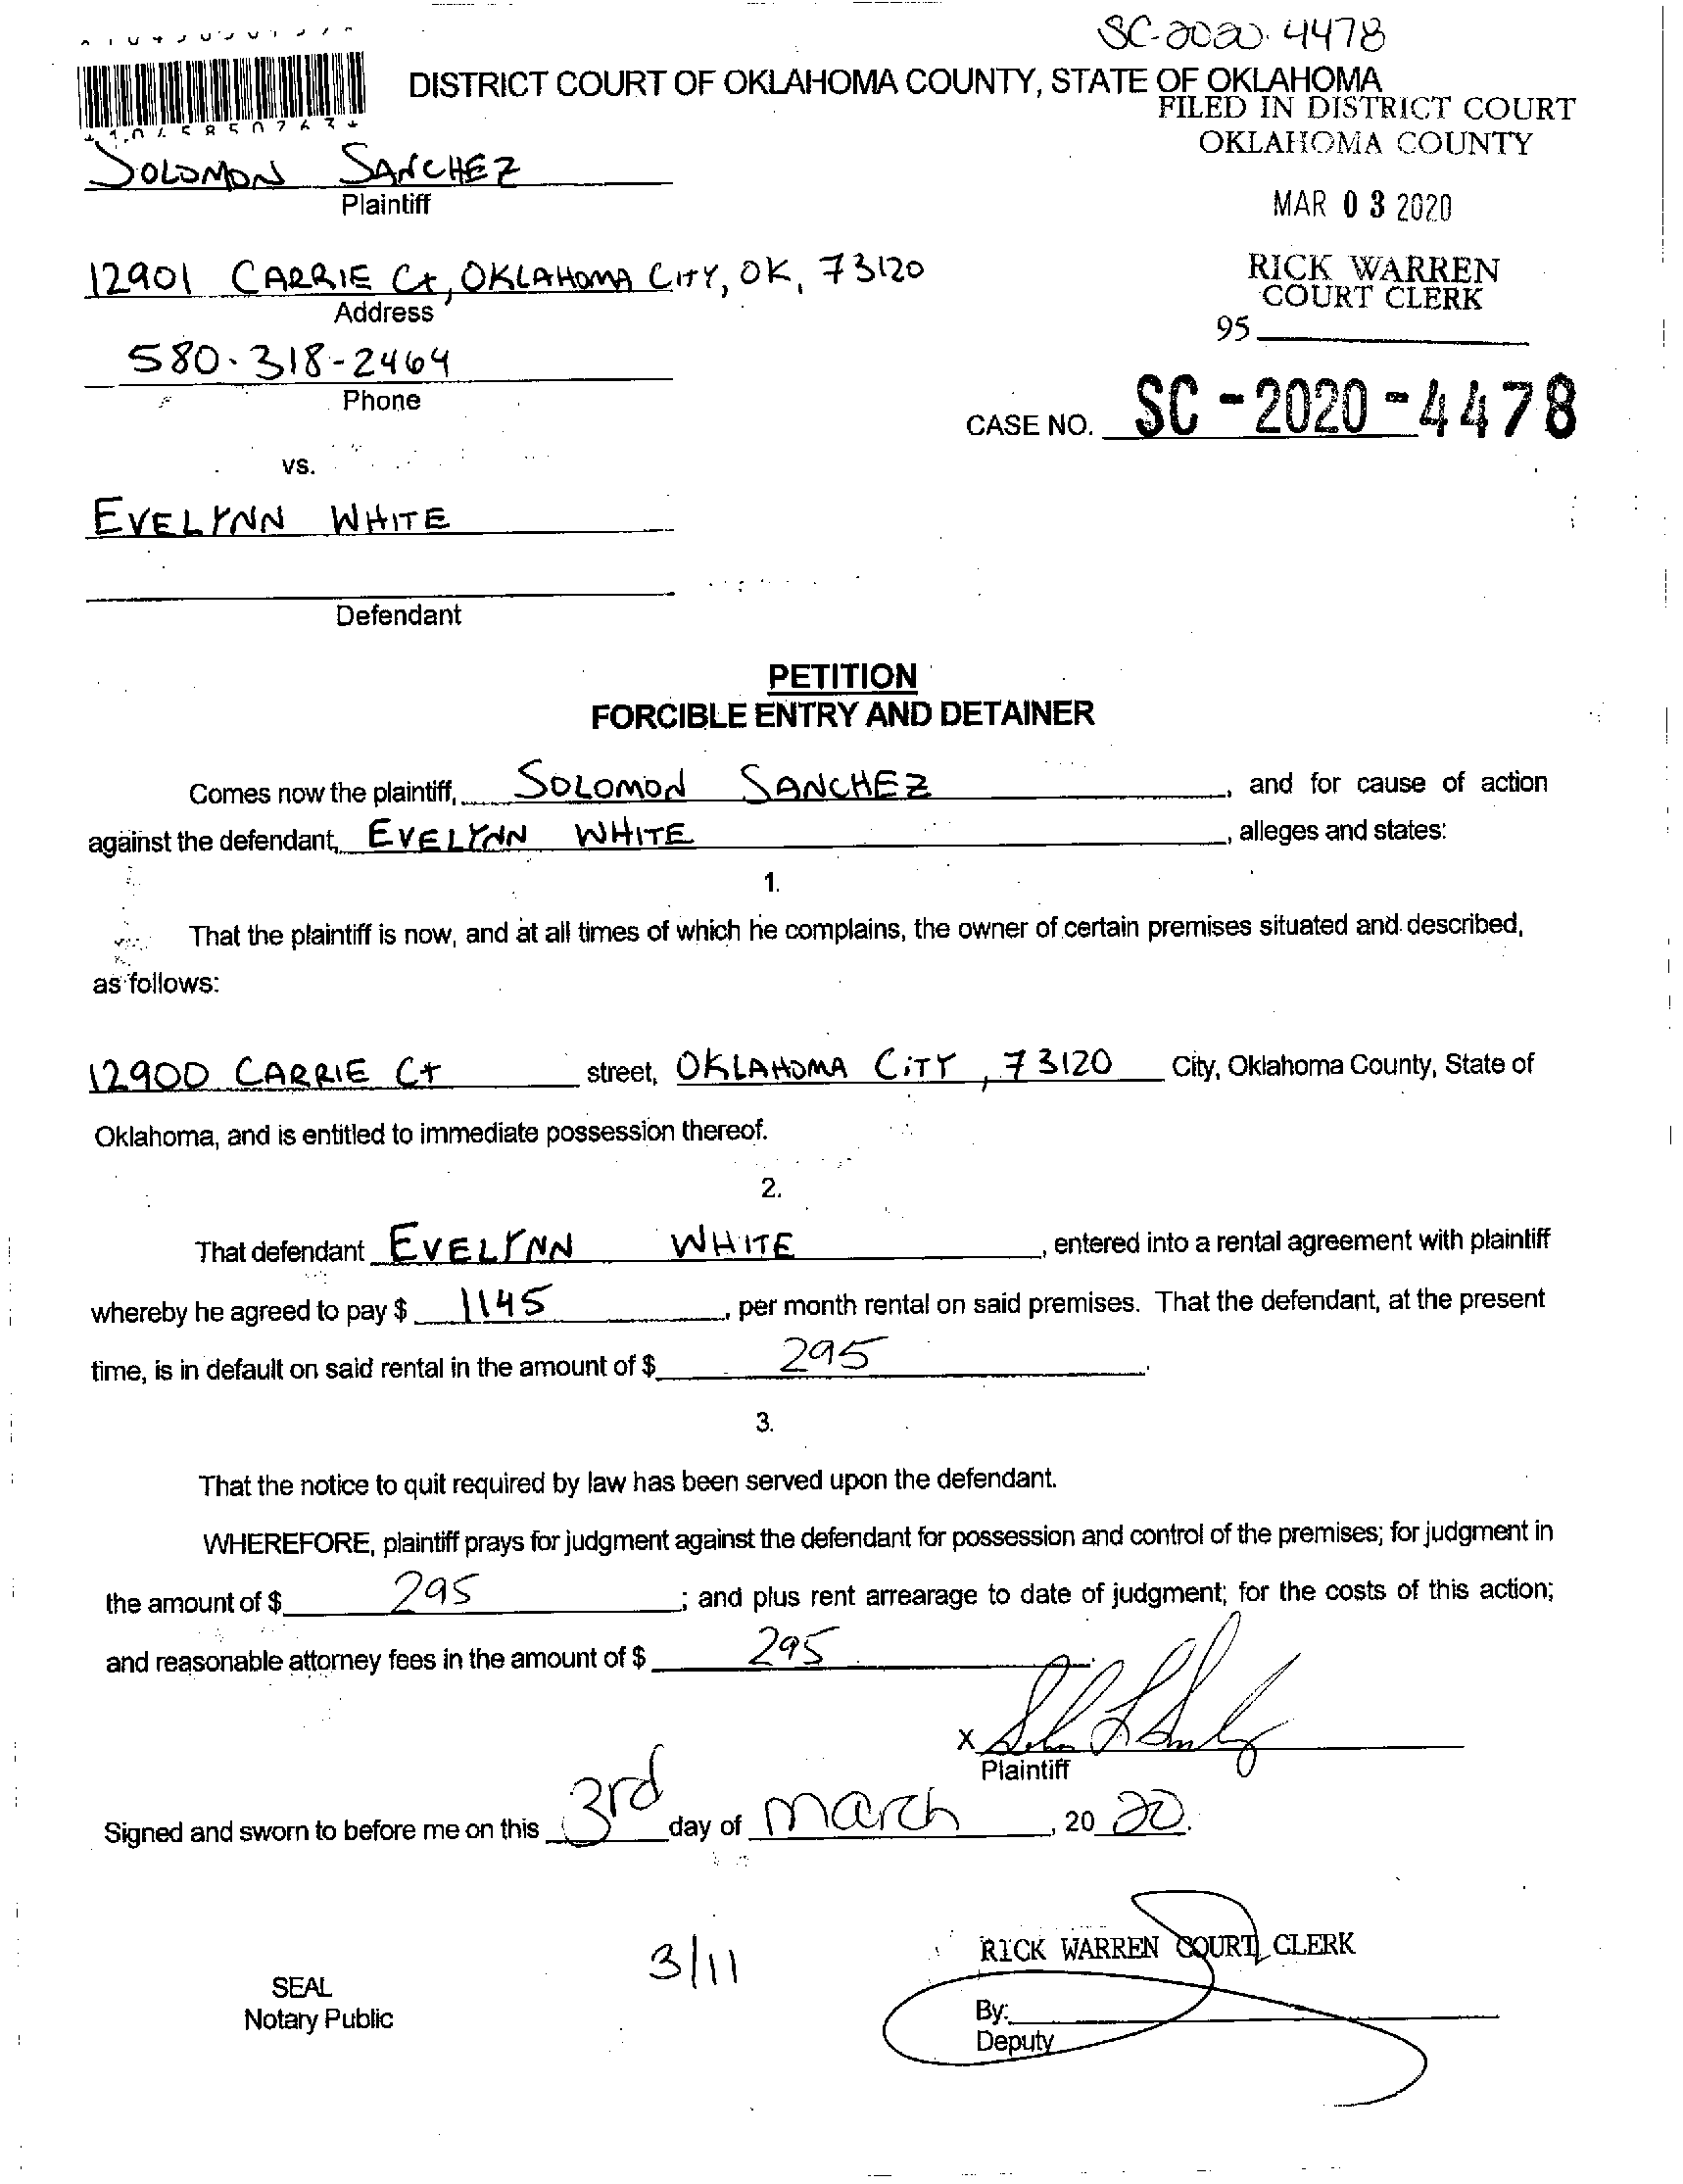 SC-2020-4478
DISTRICT COURT OF OKLAHOMA COUNTY, STATE OF OKLAHOMA
FILED IN DISTRICT COURT
OKLAHOMA COUNTY
MAR 03 2020
RICK WARREN
COURT CLERK
95
SOLOMON SANCHEZ
Plaintiff
12901 CARRIE Ct, OKLAHOMA CITY, OK, 73120
Address
580-318-2464
Phone
CASE NO. SC-2020-4478
vs.
EVELYNN WHITE
Defendant
PETITION
FORCIBLE ENTRY AND DETAINER
Comes now the plaintiff, SOLOMON SANCHEZ, and for cause of action
against the defendant, EVELYNN WHITE, alleges and states:
1.
That the plaintiff is now, and at all times of which he complains, the owner of certain premises situated and described,
as follows:
12900 CARRIE Ct street, OKLAHOMA CITY, 73120 City, Oklahoma County, State of
Oklahoma, and is entitled to immediate possession thereof.
2.
That defendant EVELYNN WHITE, entered into a rental agreement with plaintiff
whereby he agreed to pay $ 1145, per month rental on said premises. That the defendant, at the present
time, is in default on said rental in the amount of $ 295.
3.
That the notice to quit required by law has been served upon the defendant.
WHEREFORE, plaintiff prays for judgment against the defendant for possession and control of the premises; for judgment in
the amount of $ 295; and plus rent arrearage to date of judgment; for the costs of this action;
and reasonable attorney fees in the amount of $ 295.
X
Plaintiff
Signed and sworn to before me on this 3rd day of march, 20 20.
3/11
RICK WARREN COURT CLERK
SEAL
Notary Public
By:
Deputy